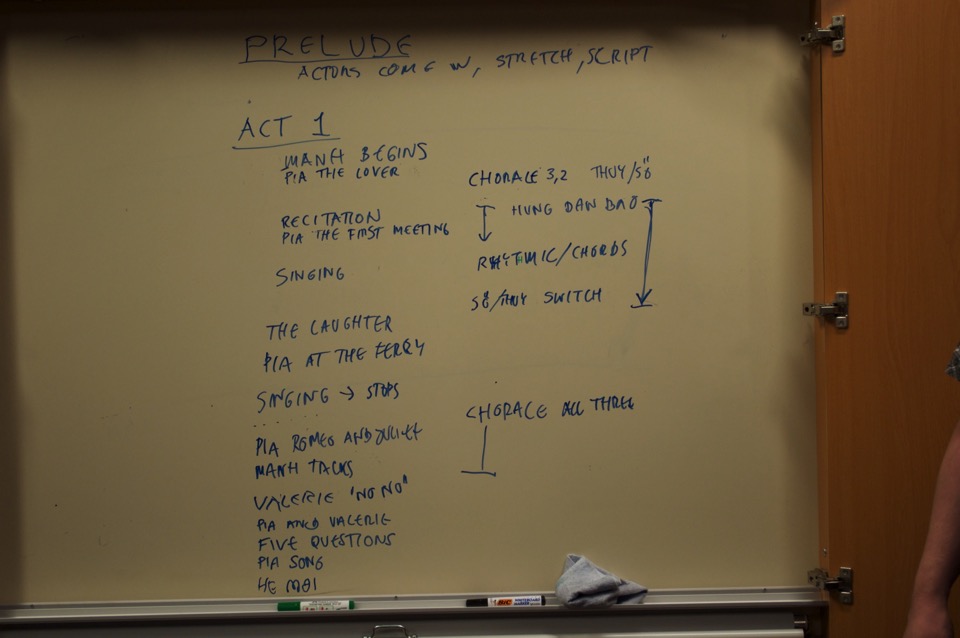 PRELUDE
ACTORS COME IN, STRETCH, SCRIPT
ACT 1
MANH BEGINS
PIA THE LOVER
CHORALE 3,2 THUY/SÖ
RECITATION
HUNG DAN BAO
PIA THE FIRST MEETING
RHYTMIC/CHORDS
SINGING
SÖ/THUY SWITCH
THE LAUGHTER
PIA AT THE FERRY
SINGING → STOPS
CHORALE ALL THREE
PIA ROMEO AND JULIET
MANH TALKS
VALERIE "NO NO"
PIA AND VALERIE
FIVE QUESTIONS
PIA SONG
HE MOI
BIC